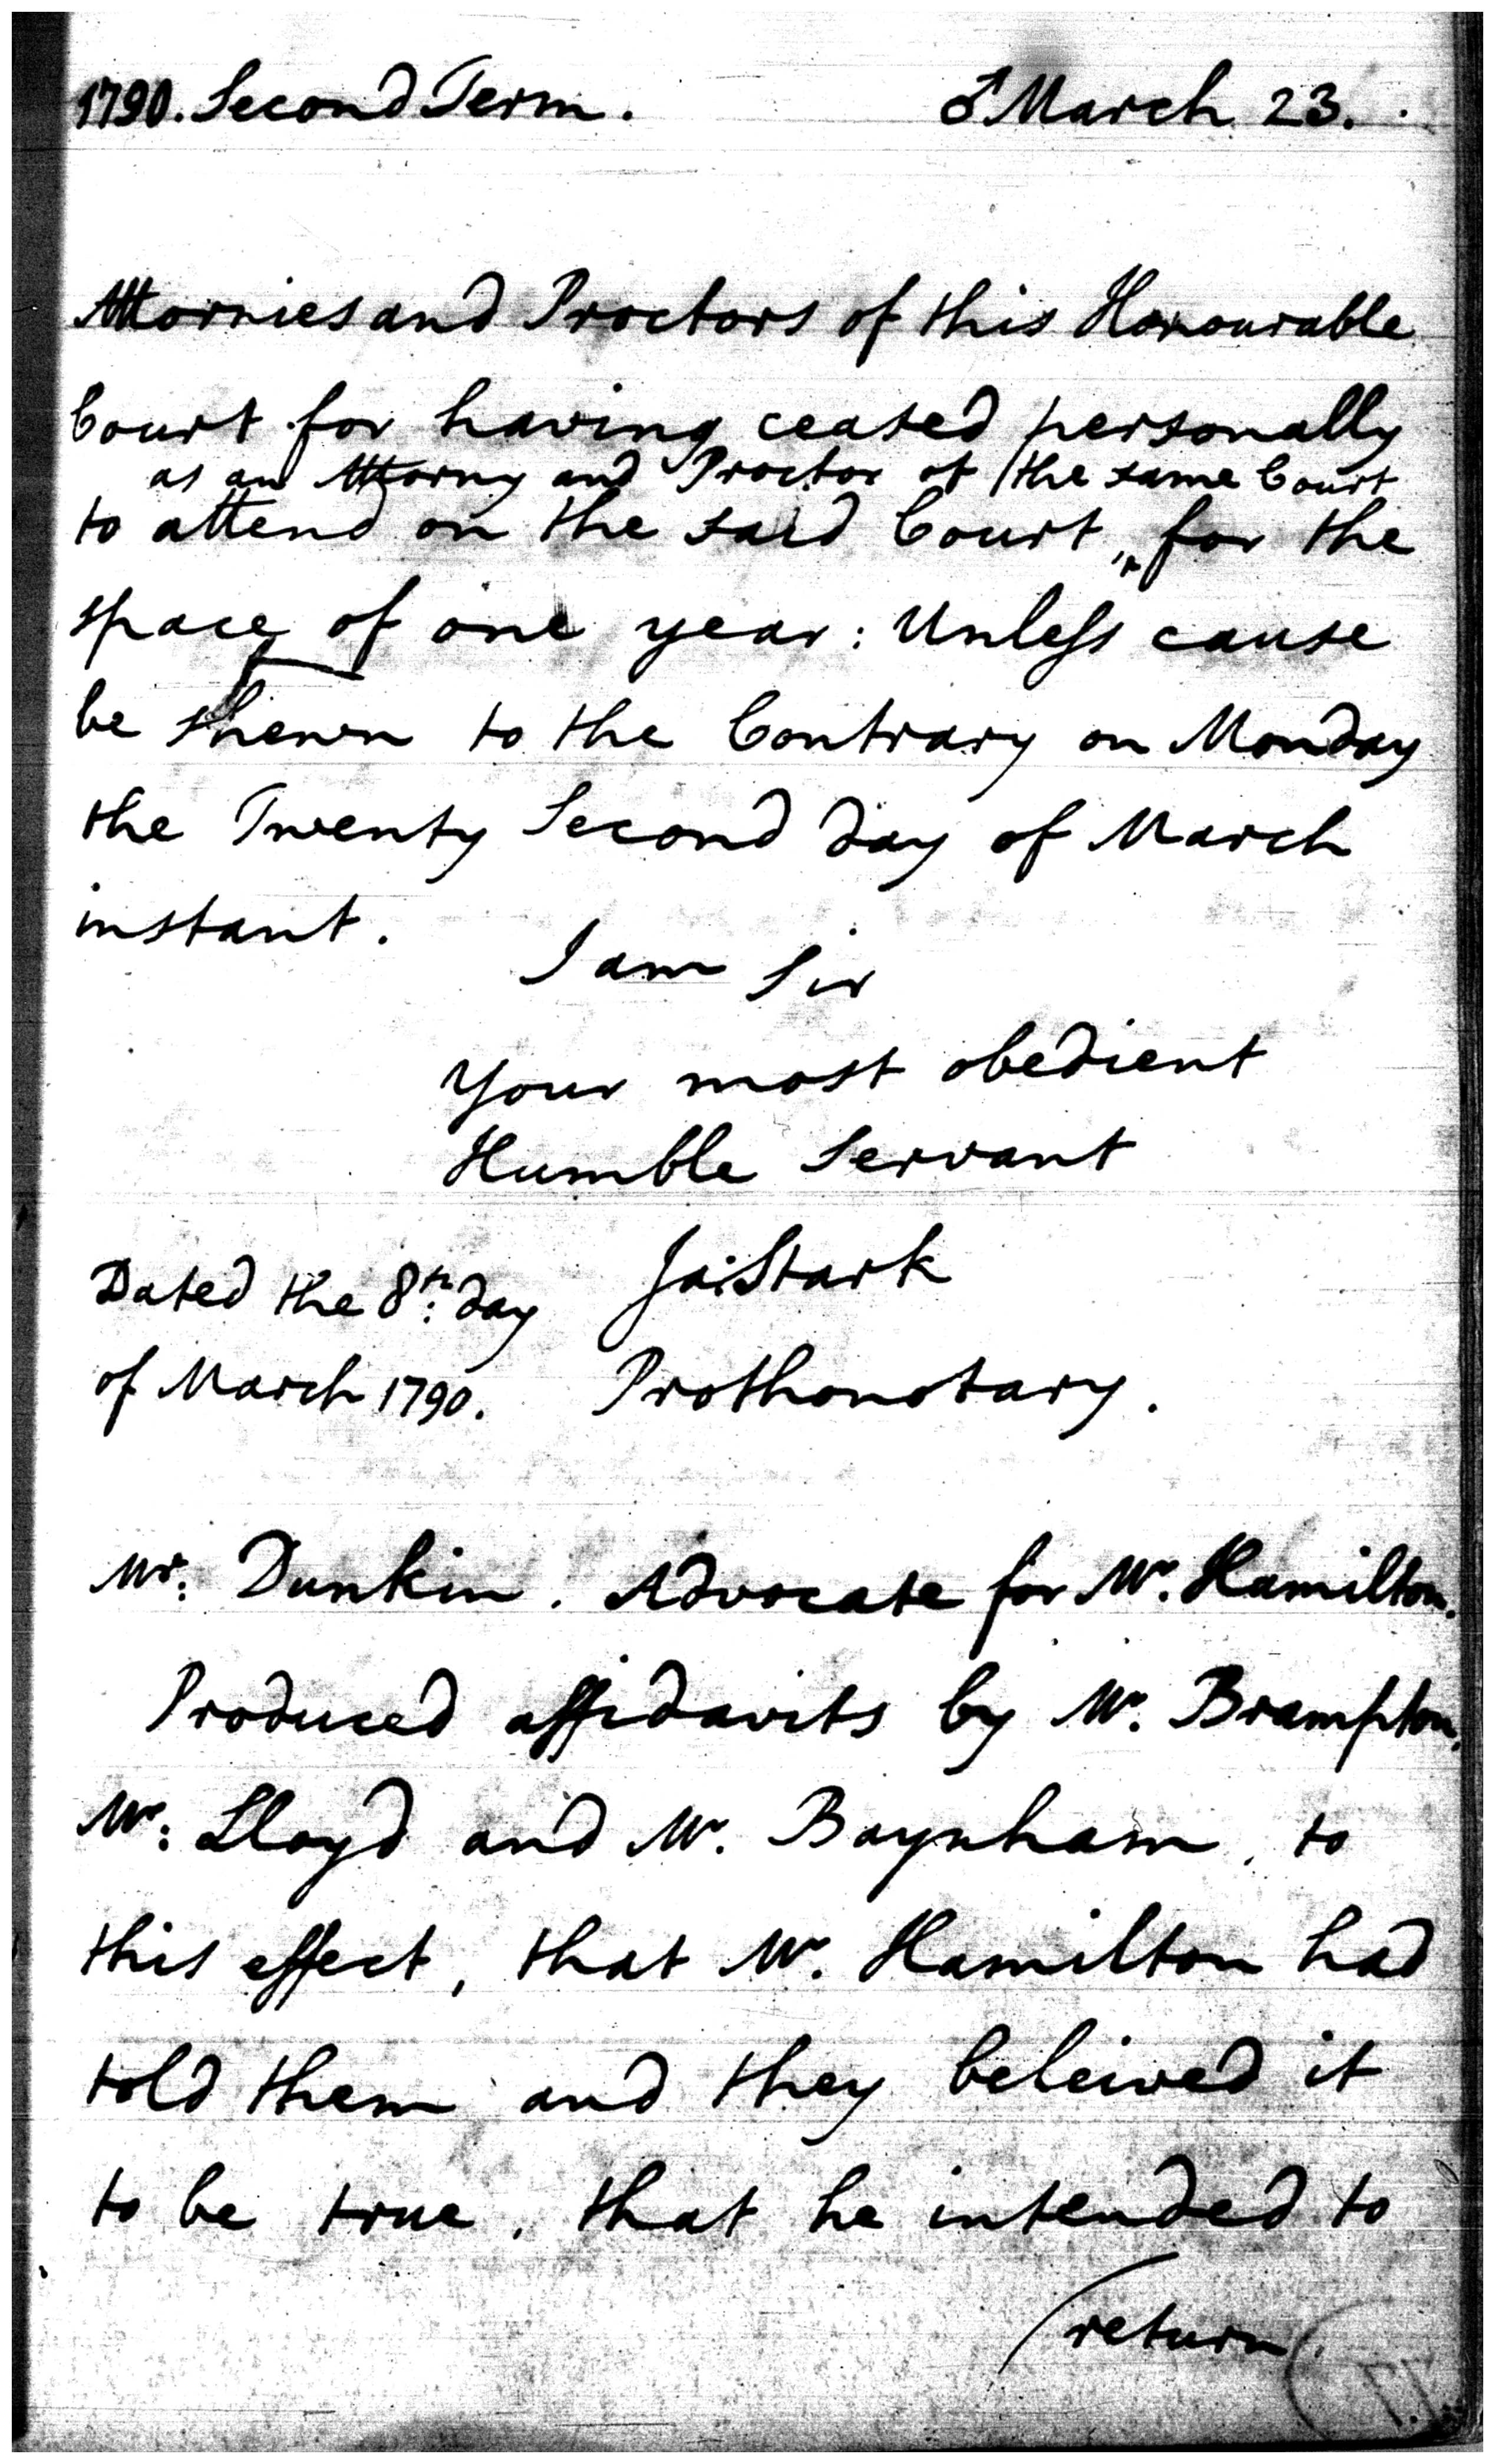 1790. Second Term. ♂ March 23.
Attornies and Proctors of this Honourable
Court for having ceased personally
as an Attorny and Proctor of the same Court
to attend on the said Court, for the
space of one year: Unless cause
be shewn to the Contrary on Monday
the Twenty Second day of March
instant.
I am Sir
Your most obedient
Humble Servant
Dated the 8th: day Ja: Stark
of March 1790. Prothonotary.
Mr: Dunkin. Advocate for Mr. Hamilton.
Produced affidavits by Mr. Brampton,
Mr: Lloyd and Mr. Baynham, to
this effect, that Mr. Hamilton had
told them and they beleived it
to be true, that he intended to
(return.